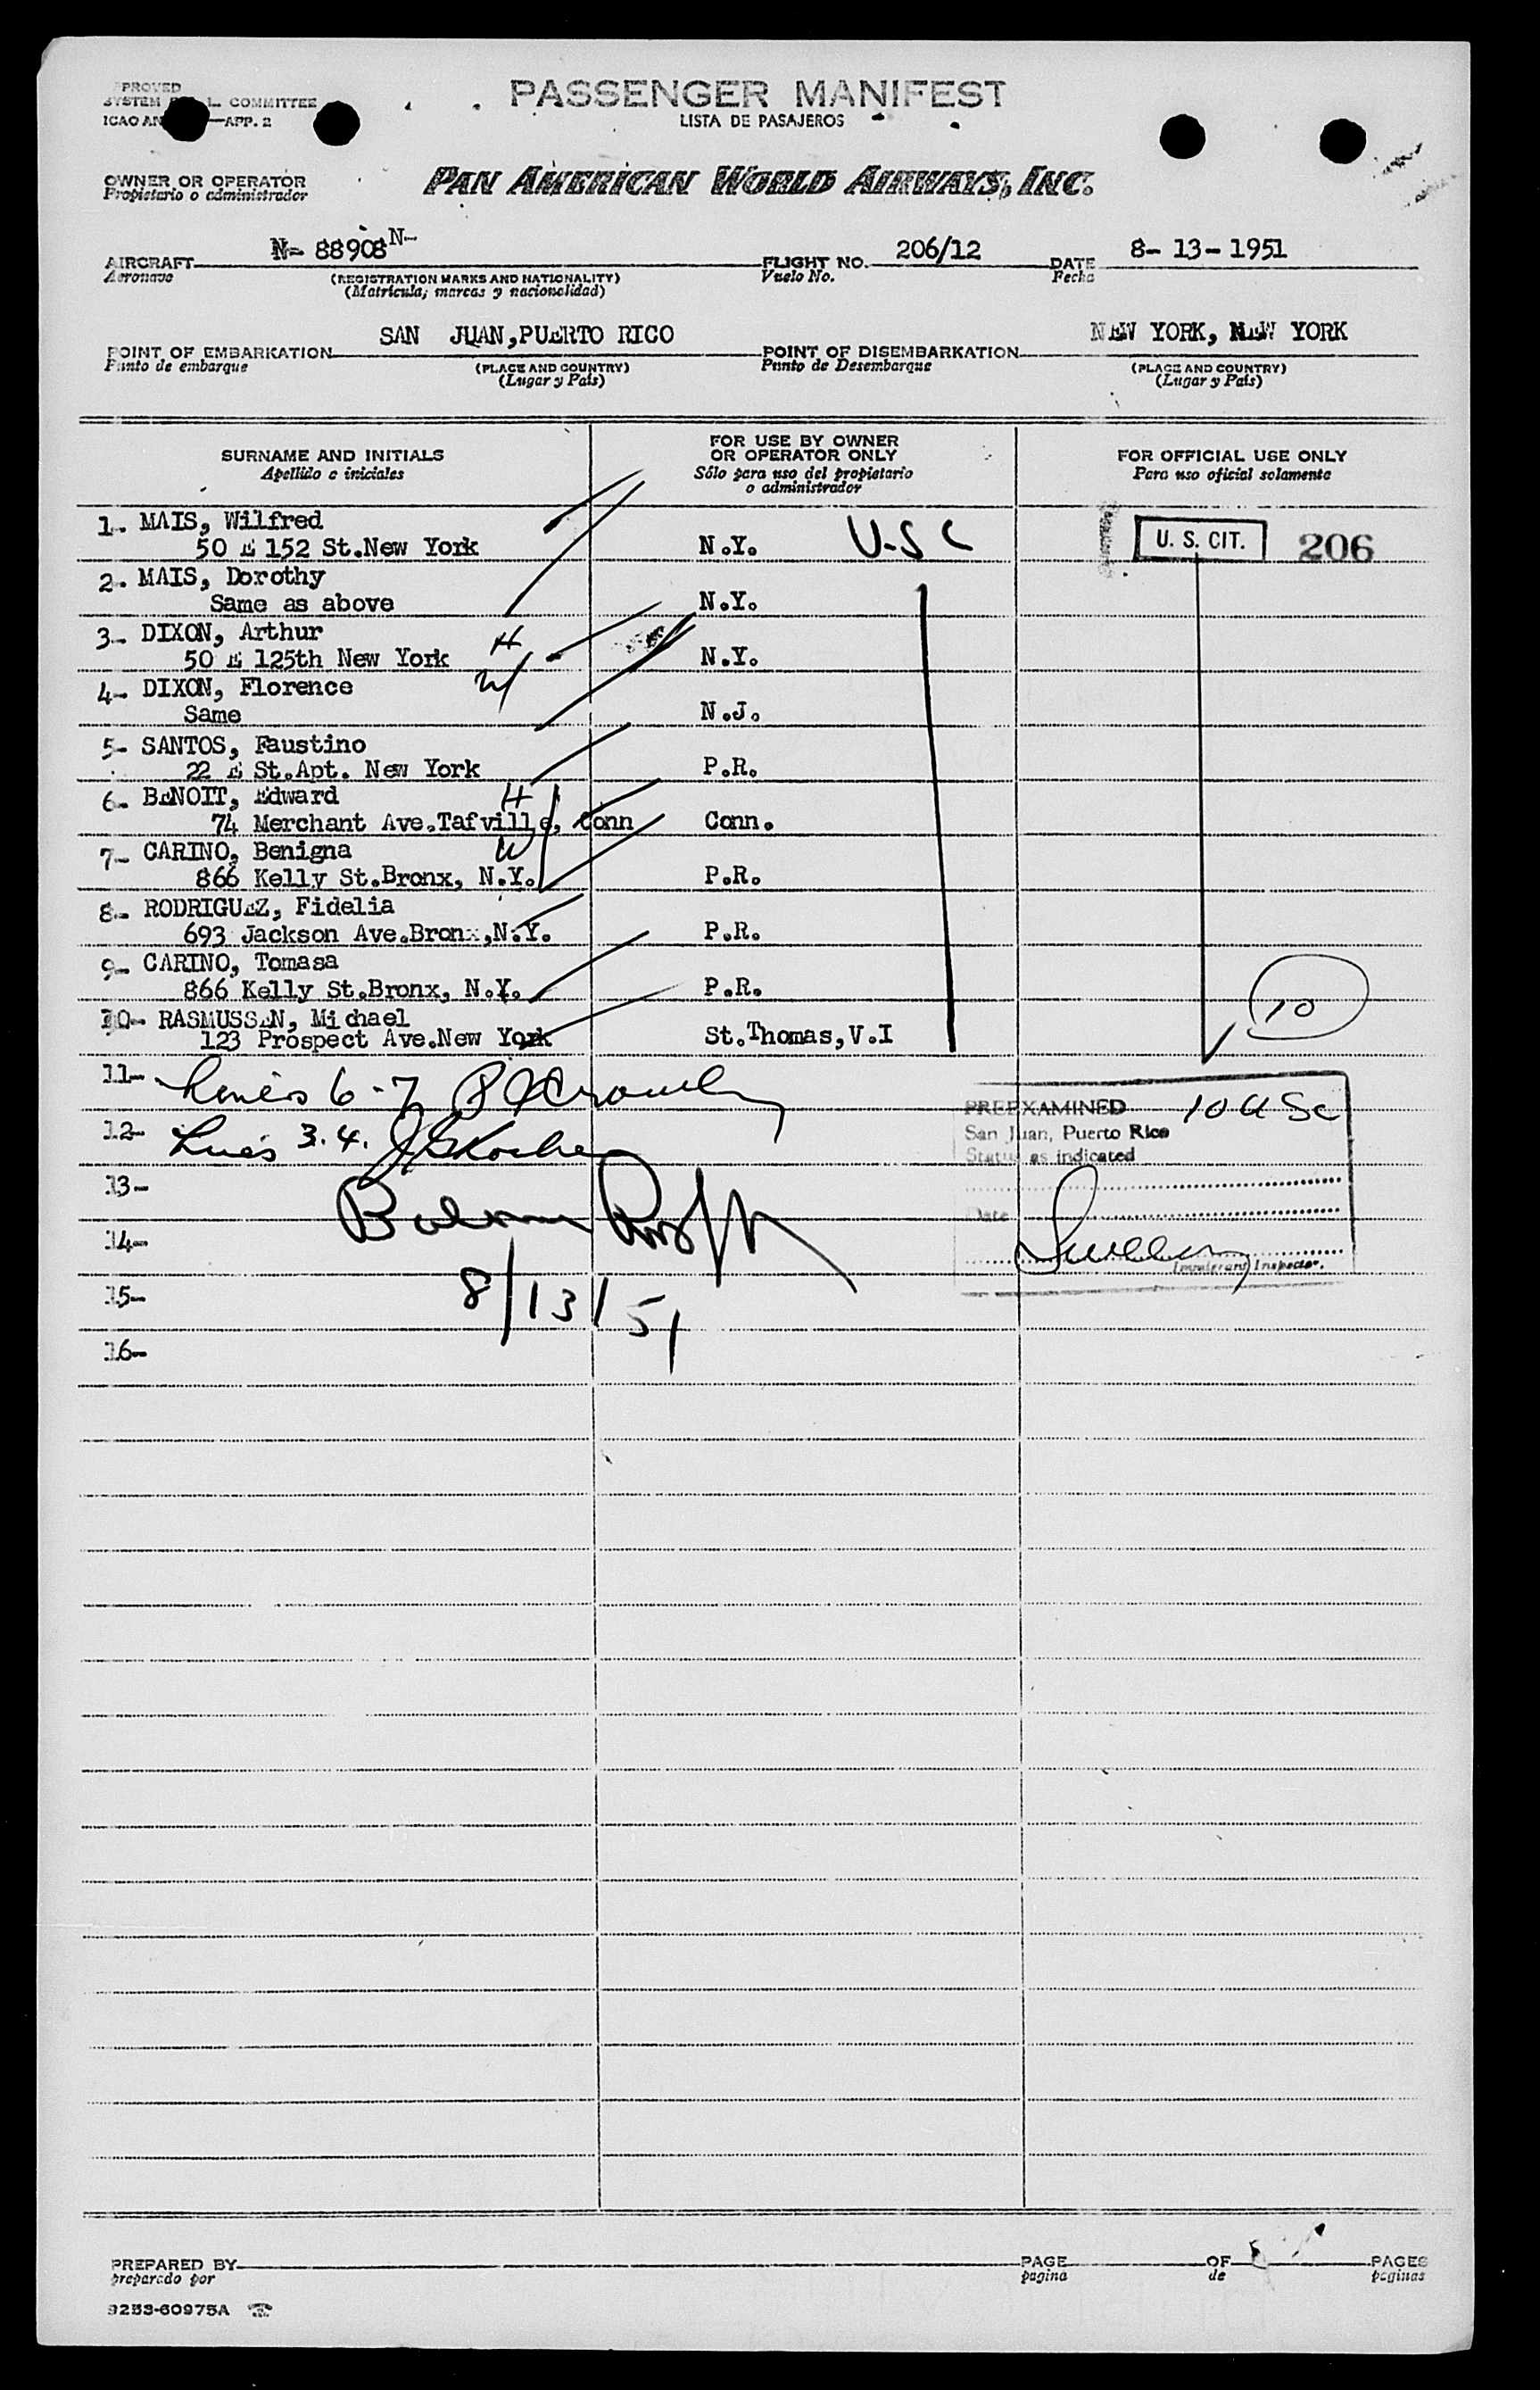 PASSENGER MANIFEST
LISTA DE PASAJEROS
PROVED
SYSTEM L COMMITTEE
ICAO AN APP. 2
OWNER OR OPERATOR
Propietario o administrador
PAN AMERICAN WORLD AIRWAYS, INC.
AIRCRAFT N- 88908 N- FLIGHT NO. 206/12 DATE 8- 13- 1951
Aeronave (REGISTRATION MARKS AND NATIONALITY) Vuelo No. Fecha
(Matrícula, marcas y nacionalidad)
POINT OF EMBARKATION SAN JUAN, PUERTO RICO POINT OF DISEMBARKATION NEW YORK, NEW YORK
Punto de embarque (PLACE AND COUNTRY) Punto de Desembarque (PLACE AND COUNTRY)
(Lugar y País) (Lugar y País)
SURNAME AND INITIALS
Apellido e iniciales
FOR USE BY OWNER
OR OPERATOR ONLY
Sólo para uso del propietario
o administrador
FOR OFFICIAL USE ONLY
Para uso oficial solamente
1- MAIS, Wilfred
50 E 152 St.New York N.Y. U.S C U. S. CIT. 206
2- MAIS, Dorothy
Same as above N.Y.
3- DIXON, Arthur H
50 E 125th New York N.Y.
4- DIXON, Florence W
Same N.J.
5- SANTOS, Faustino
22 E St.Apt. New York P.R.
6- BENOIT, Edward H
74 Merchant Ave.Tafville, Conn Conn.
7- CARINO, Benigna W
866 Kelly St.Bronx, N.Y. P.R.
8- RODRIGUEZ, Fidelia
693 Jackson Ave.Bronx,N.Y. P.R.
9- CARINO, Tomasa
866 Kelly St.Bronx, N.Y. P.R.
10- RASMUSSEN, Michael 10
123 Prospect Ave.New York St.Thomas, V.I
11- Lines 6-7
12- Lines 3.4.
PREEXAMINED 10 U S C
San Juan, Puerto Rico
Status as indicated
Date
Immigrant Inspector.
13-
14-
15- 8/13/51
16-
PREPARED BY PAGE OF PAGES
preparado por pagina de paginas
9253-60975A